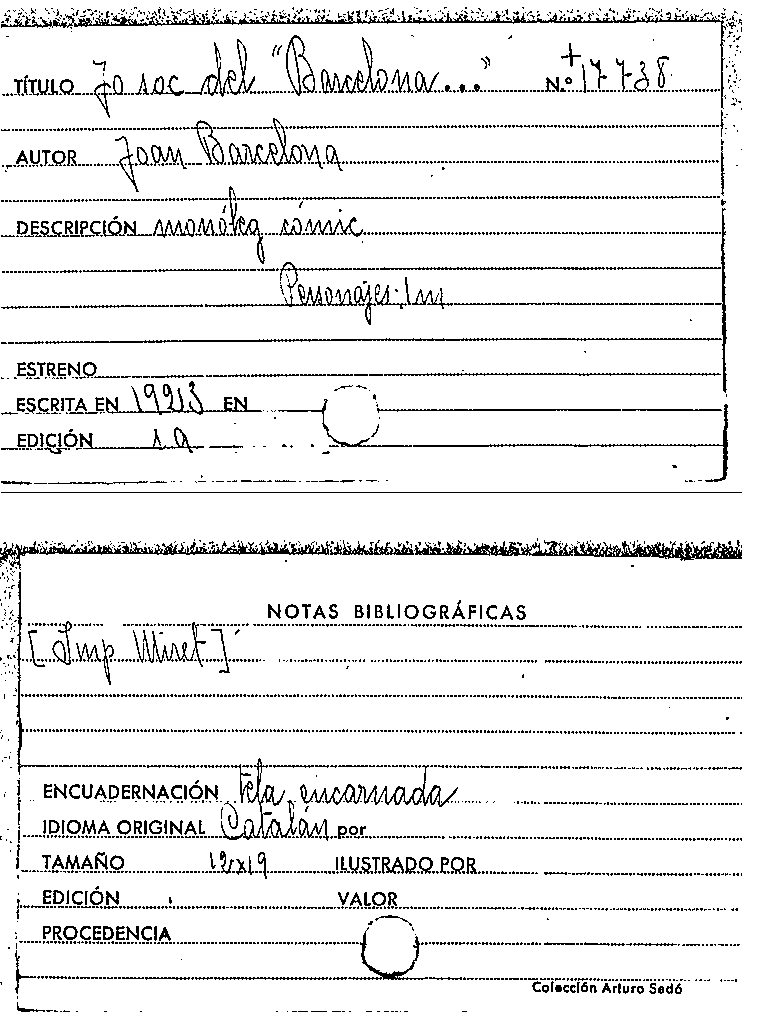 TÍTULO Jo soc del "Barcelona..." N.º 17738
AUTOR Joan Barcelona
DESCRIPCIÓN monóleg còmic
Personajes: 1 m
ESTRENO
ESCRITA EN EN
EDICIÓN
NOTAS BIBLIOGRÁFICAS
[Imp Miret]
ENCUADERNACIÓN tela encarnada
IDIOMA ORIGINAL Catalán por
TAMAÑO 12x19 ILUSTRADO POR
EDICIÓN VALOR
PROCEDENCIA
Colección Arturo Sedó